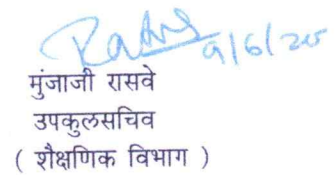 9/6/25
मुंजाजी रासवे
उपकुलसचिव
( शैक्षणिक विभाग )